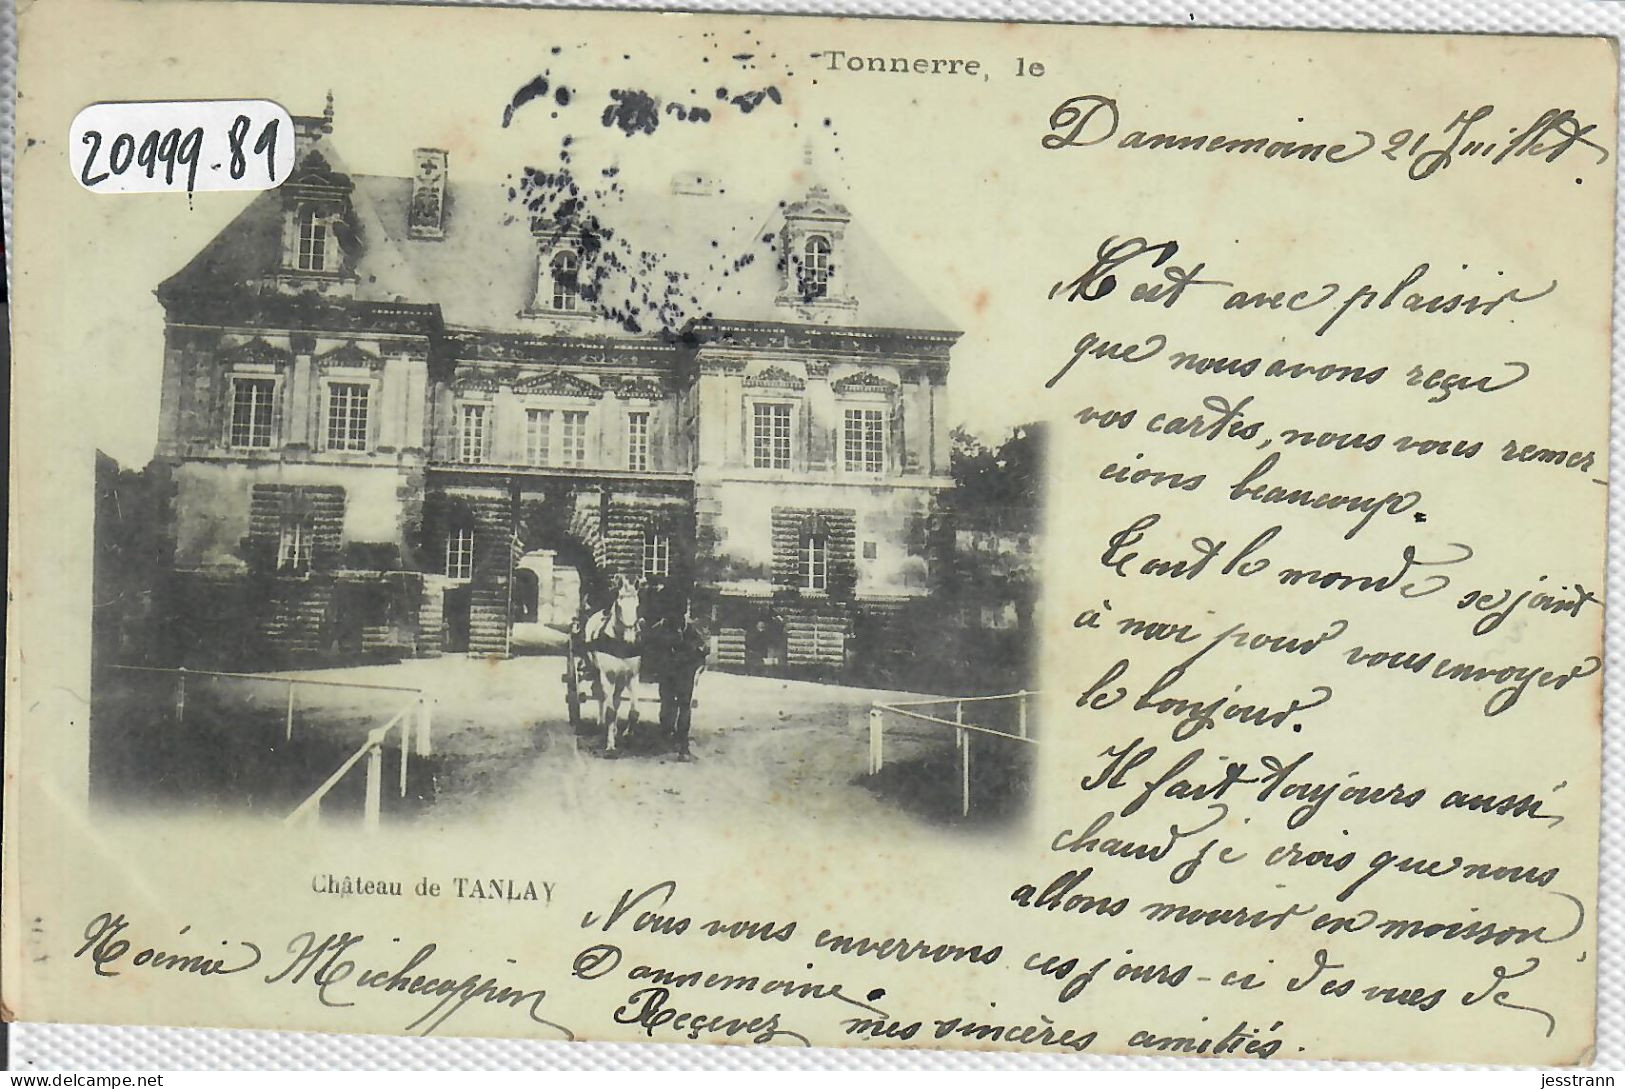 Tonnerre, le
20999-89
Dannemoine 21 Juillet.
C'est avec plaisir
que nous avons reçu
vos cartes, nous vous remer-
cions beaucoup.
Tout le monde se joint
à moi pour vous envoyer
le bonjour.
Il fait toujours aussi
chaud je crois que nous
allons mourir en moisson,
Château de TANLAY
Nous vous enverrons ces jours-ci des vues de
Dannemoine.
Recevez mes sincères amitiés.
Noémie Michecoppin
Delcampe.net
jesstrann